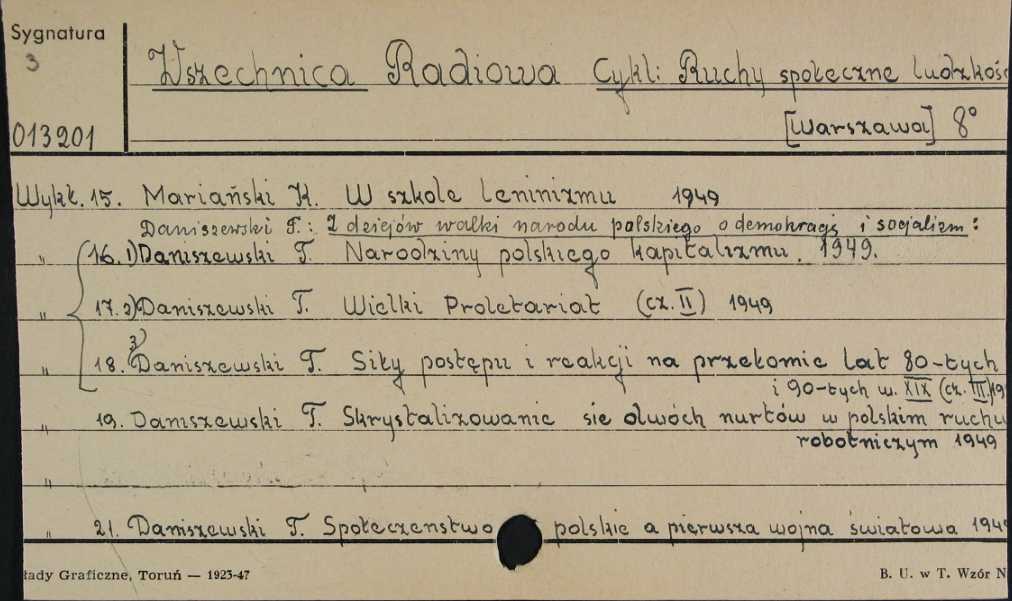 Sygnatura
3
013201
Wszechnica Radiowa Cykl: Ruchy społeczne ludzkośc
[Warszawa] 8°
Wykł. 15. Mariański K. W szkole leninizmu 1949
Daniszewski T.: Z dziejów walki narodu polskiego o demokrację i socjalizm:
" 16. 1) Daniszewski T. Narodziny polskiego kapitalizmu. 1949.
" 17. 2) Daniszewski T. Wielki Proletariat (cz. II) 1949
" 18. 3) Daniszewski T. Siły postępu i reakcji na przełomie lat 80-tych
i 90-tych w. XIX (cz. III) 19
" 19. Daniszewski T. Skrystalizowanie sie dwóch nurtów w polskim ruchu
robotniczym 1949
"
" 21. Daniszewski T. Społeczeństwo polskie a pierwsza wojna światowa 1949
łady Graficzne, Toruń — 1923-47
B. U. w T. Wzór N